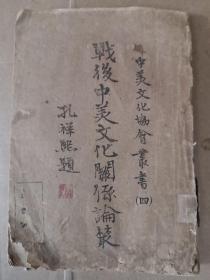 中美文化協會叢書(四)
戰後中美文化關係論叢
孔祥熙題